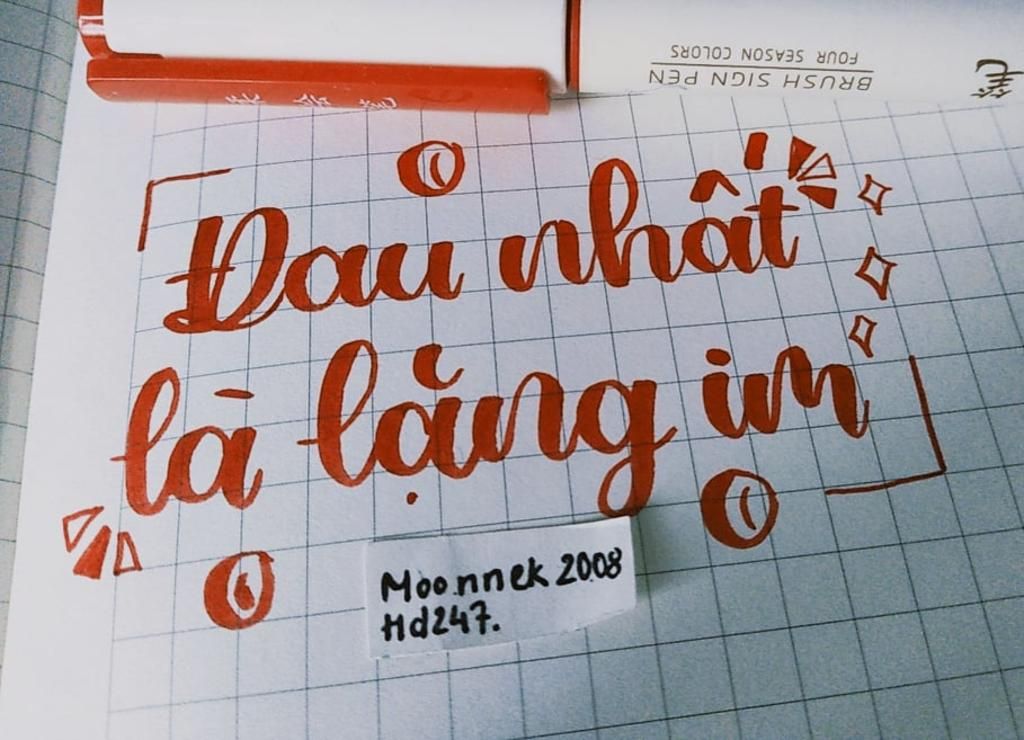 FOUR SEASON COLORS
BRUSH SIGN PEN
Đau nhất
là lặng im
Moonnek 2008
Hd247.